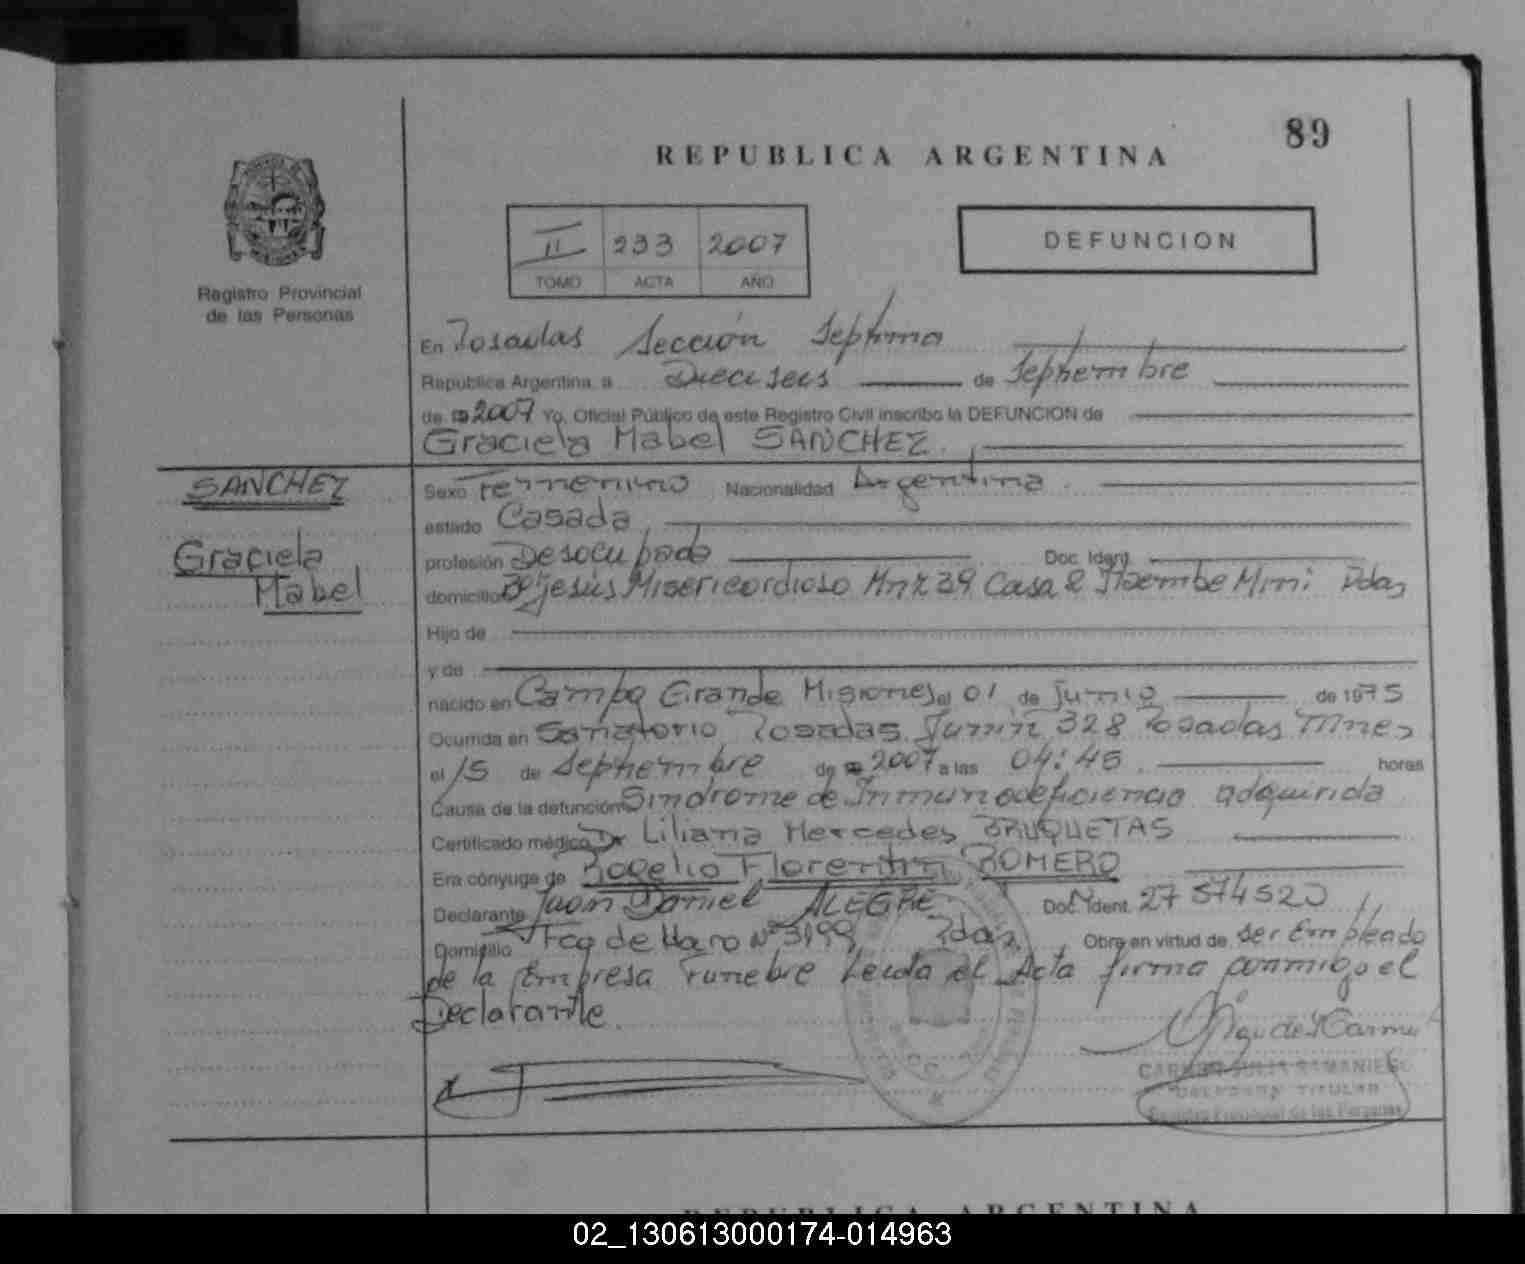 89
REPUBLICA ARGENTINA
II 233 2007
TOMO ACTA AÑO
DEFUNCION
Registro Provincial
de las Personas
En Posadas Sección Septima
Republica Argentina, a Dieciseis de Septiembre
de 2007 Yo, Oficial Público de este Registro Civil inscribo la DEFUNCION de
Graciela Mabel SANCHEZ.
SANCHEZ
Graciela
Mabel
Sexo Femenino Nacionalidad Argentina
estado Casada
profesión Desocupada Doc. Ident.
domicilio Bº Jesús Misericordioso Mnz 39 Casa 2 Itaembe Mini Pdas
Hijo de
y de
nacido en Campo Grande Misiones el 01 de Junio de 1975
Ocurrida en Sanatorio Posadas Junin 328 Posadas Mnes
el 15 de Septiembre de 2007 a las 04:45 horas
Causa de la defunción Sindrome de Inmunodeficiencia adquirida
Certificado médico Dr Liliana Mercedes BRUQUETAS
Era cónyuge de Rogelio Florentin ROMERO
Declarante Juan Daniel ALEGRE Doc. Ident. 27574520
Domicilio Fco de Haro Nº 3199 Pdas Obra en virtud de ser Empleado
de la Empresa Funebre Leida el Acta firma conmigo el
Declarante.
TITULAR
Registro Provincial de las Personas
REPUBLICA ARGENTINA
02_130613000174-014963